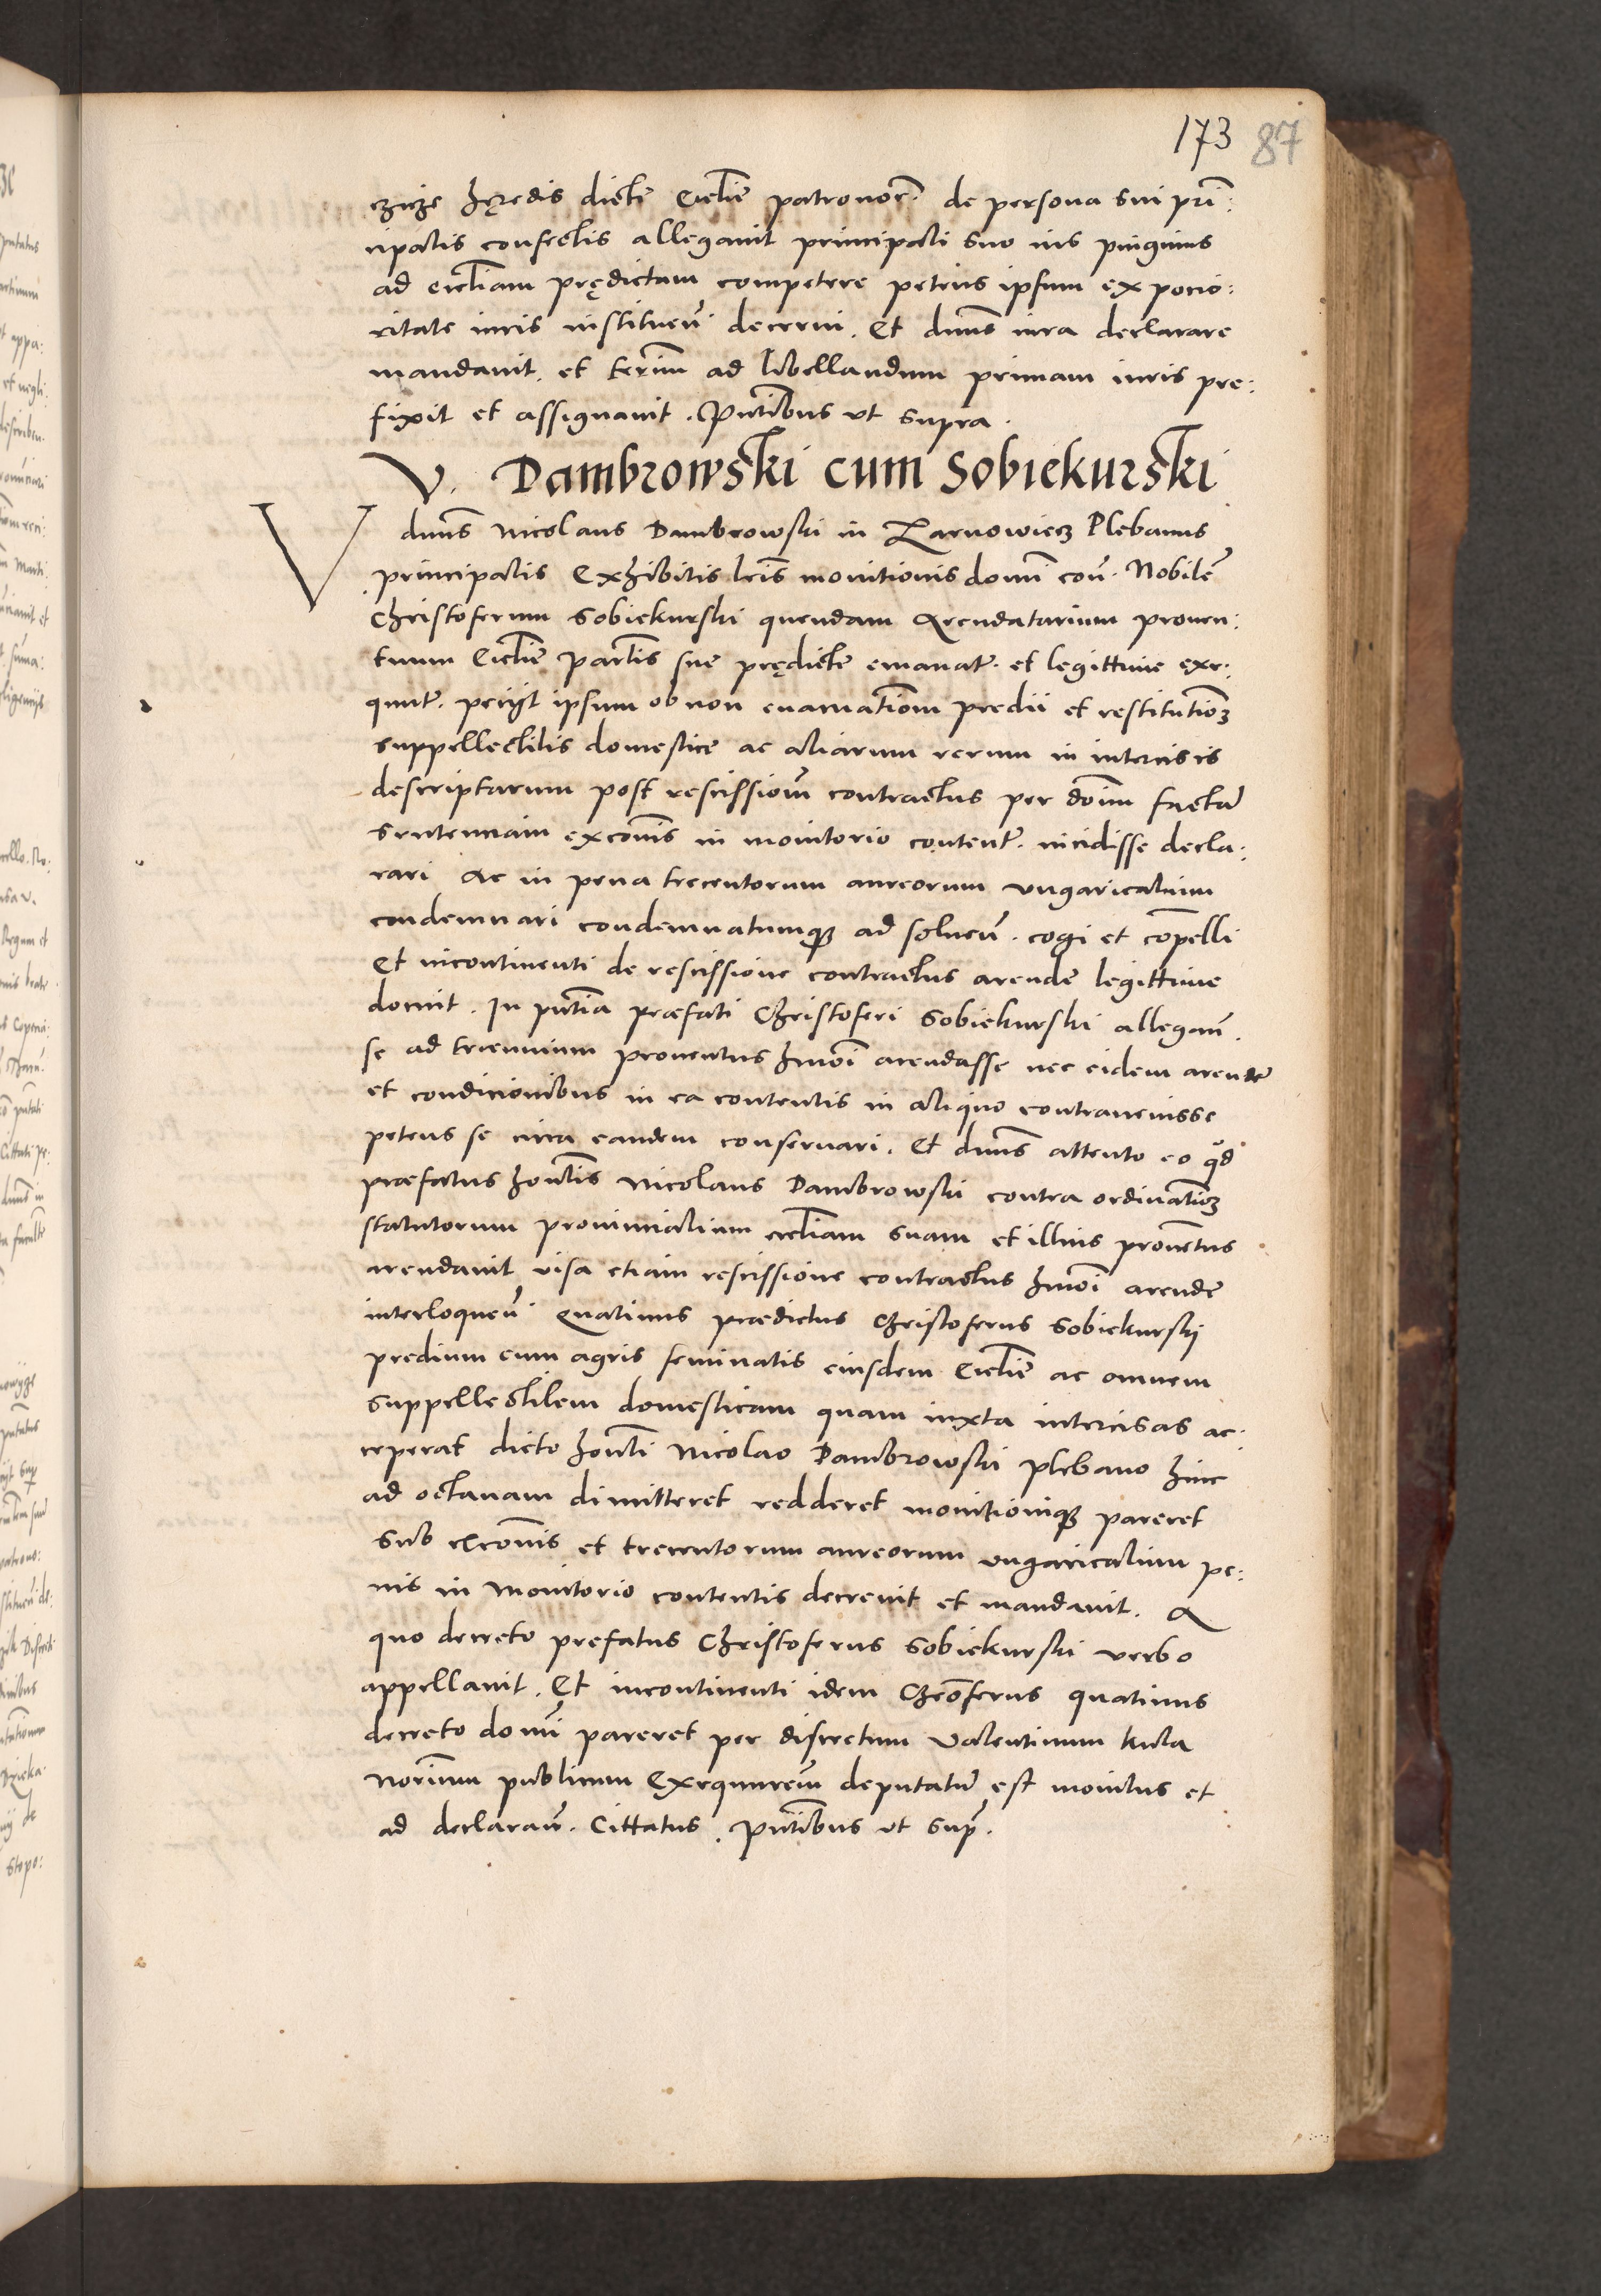 173 87
cziże hęredis dictę Ecclię patronor. de persona sui prı̄:
cipalis confectis allegavit principali suo ius pinguius
ad ecclīam prędictam competere petens ipsum ex pocio:
ritate iuris instituen̄. decerni. Et dmn̄s iura declarare
mandavit. et termı̄n ad libellandum primam iuris pre:
fixit et assignavit. Pn̄tibus ut supra.
V. Dambrowski cum Sobiekurski
V dmn̄s Nicolaus Dambrowski in Zarnowiecz Plebanus
principalis Exhibitis lr̄is monitionis domı̄ con̄. Nobilē
Christoferum Sobiekurski quendam Arendatarium proven:
tuum Ecclię partis sue prędictę emanatz. et legittime exe:
qunt. peciit ipsum ob non evacuationem predii et restitutionē
suppellectilis domestice ac aliarum rerum in intercisis
descriptarum post rescissionem contractus per domn̄ factā
sentenciam excōnis in monitorio contentz. incidisse decla:
rari Ac in pena trecentorum aureorum ungaricalium
condemnari condemnatumque ad solven̄. cogi et compelli
Et incontinenti de rescissione contractus arende legittime
docuit. In pn̄tia præfati Christoferi Sobiekurski allegan̄.
se ad triennium proventus hmōi arendasse nec eidem arendę
et condicionibus in ea contentis in aliquo contravenisse
petens se circa eandem conservari. Et dmn̄s attento eo qd̄
præfatus hon̄lis Nicolaus Dambrowski contra ordinationē
statutorum provincialium ecclīam suam et illius proventus
arendavit visa etiam rescissione contractus hmōi arende
interloquen̄. Quatinus prædictus Christoferus Sobiekurskij
predium cum agris seminatis eiusdem Ecclię ac omnem
suppellectilem domesticam quam iuxta intercisas ac:
ceperat dicto hon̄li Nicolao Dambrowski plebano hinc
ad octavam dimitteret redderet monitionique pareret
sub excōnis et trecentorum aureorum ungaricalium pe:
nis in monitorio contentis decrevit et mandavit. A
quo decreto prefatus Christoferus Sobiekurski verbo
appellavit. Et incontinenti idem Chrōferus quatinus
decreto domı̄ pareret per discretum Valentinum kula
Norı̄um publicum Exequutorem deputatū est monitus et
ad declaran̄. Cittatus. Pn̄tibus ut sup̄.